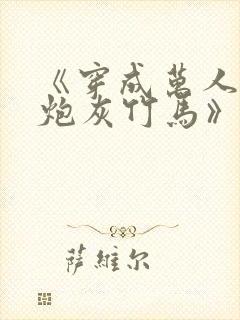 《穿成萬人
炮灰竹馬》
薩維尔